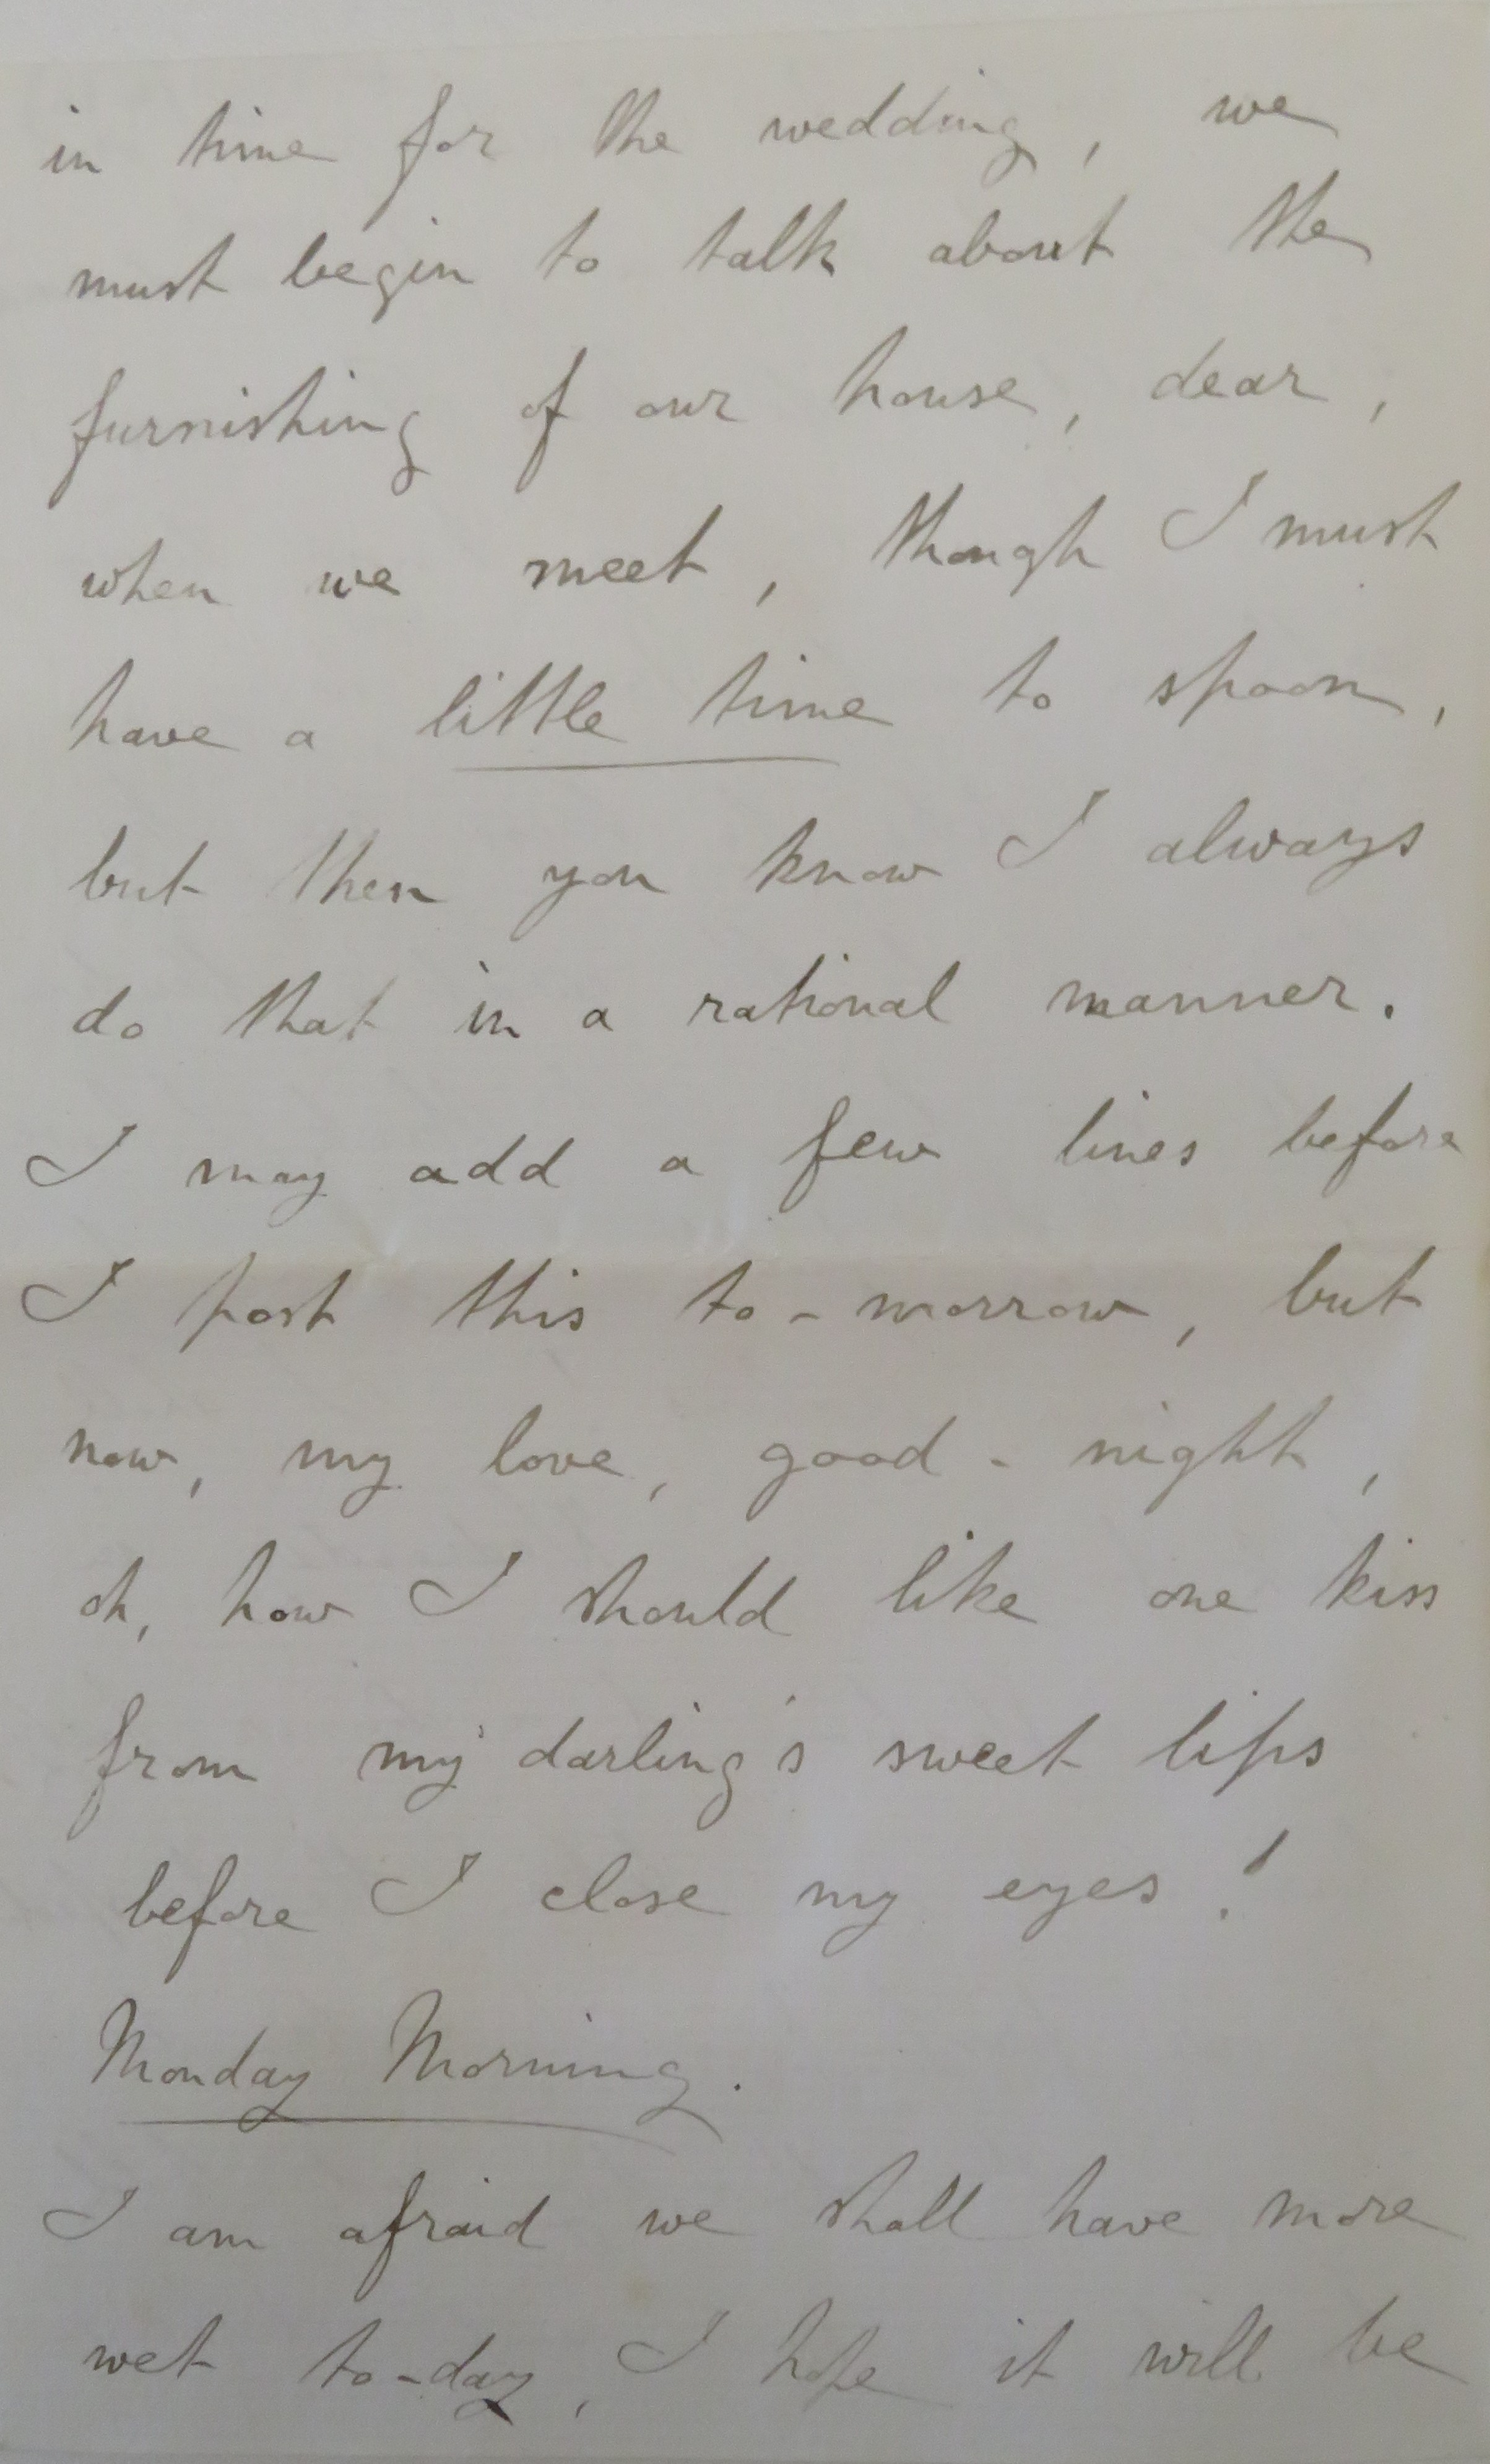 in time for the wedding, we
must begin to talk about the
furnishing of our house, dear,
when we meet, though I must
have a little time to spoon,
but then you know I always
do that in a rational manner.
I may add a few lines before
I post this to-morrow, but
now, my love, good-night,
oh, how I should like one kiss
from my darling's sweet lips
before I close my eyes!
Monday Morning.
I am afraid we shall have more
wet to-day, I hope it will be